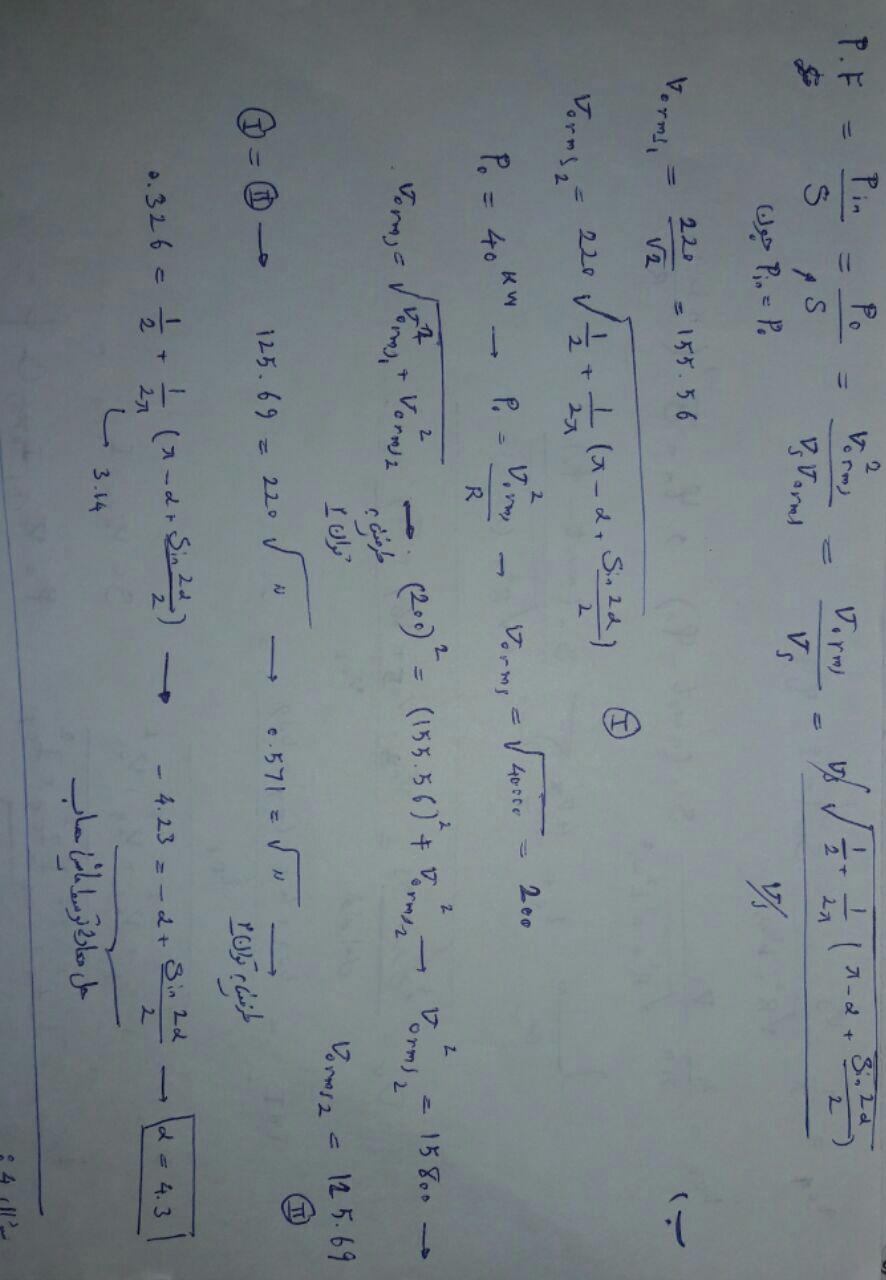 P.F = Pin / S = Po / S = Vorms² / Vs Vorms = Vorms / Vs = Vs √(1/2 + 1/2π (π - α + Sin 2α / 2)) / Vs
چون Pin = Po
ب)
Vorms1 = 220 / √2 = 155.56
Vorms2 = 220 √(1/2 + 1/2π (π - α + Sin 2α / 2)) Ⅰ
Po = 40 KW → Po = Vorms² / R → Vorms = √40000 = 200
Vorms = √(Vorms1² + Vorms2²) → (200)² = (155.56)² + Vorms2² → Vorms2² = 15800 →
طرفین به توان ۲
Vorms2 = 125.69 Ⅱ
Ⅰ = Ⅱ → 125.69 = 220 √〃 → 0.571 = √〃 →
طرفین به توان ۲
0.326 = 1/2 + 1/2π (π - α + Sin 2α / 2) → - 4.23 = - α + Sin 2α / 2 → α = 4.3
3.14
حل معادله توسط ماشین حساب
سوال 4 :